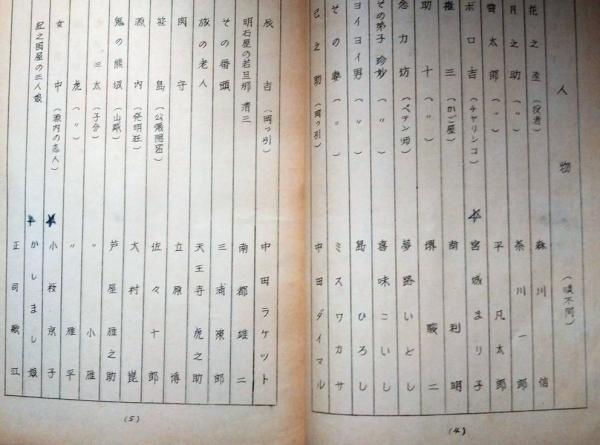 人物（順不同）
花之丞（役者） 森川信
月之助（〃） 茶川一郎
雷太郎（〃） 平凡太郎
ポロ吉（チャリンコ） 宮城まり子
権三（かご屋） 南利明
助十（〃） 堺駿二
念力坊（ペテン師） 夢路いとし
その弟子珍妙（〃） 喜味こいし
ヨイヨイ男 島ひろし
その妻（〃） ミスワカサ
巳之助（岡っ引） 中田ダイマル
(4)
辰吉（岡っ引） 中田ラケット
明石屋の若旦那清三 南都雄二
その番頭 三浦策郎
旅の老人 天王寺虎之助
関守 立原博
笹島（公儀隠密） 佐々十郎
源内（発明狂） 大村崑
鬼の熊坂（山賊） 芦屋雁之助
三太（子分） 〃小雁
虎（〃） 〃雁平
女中（源内の恋人） 小桜京子
紀之国屋の三人娘 かしまし娘
正司歌江
(5)